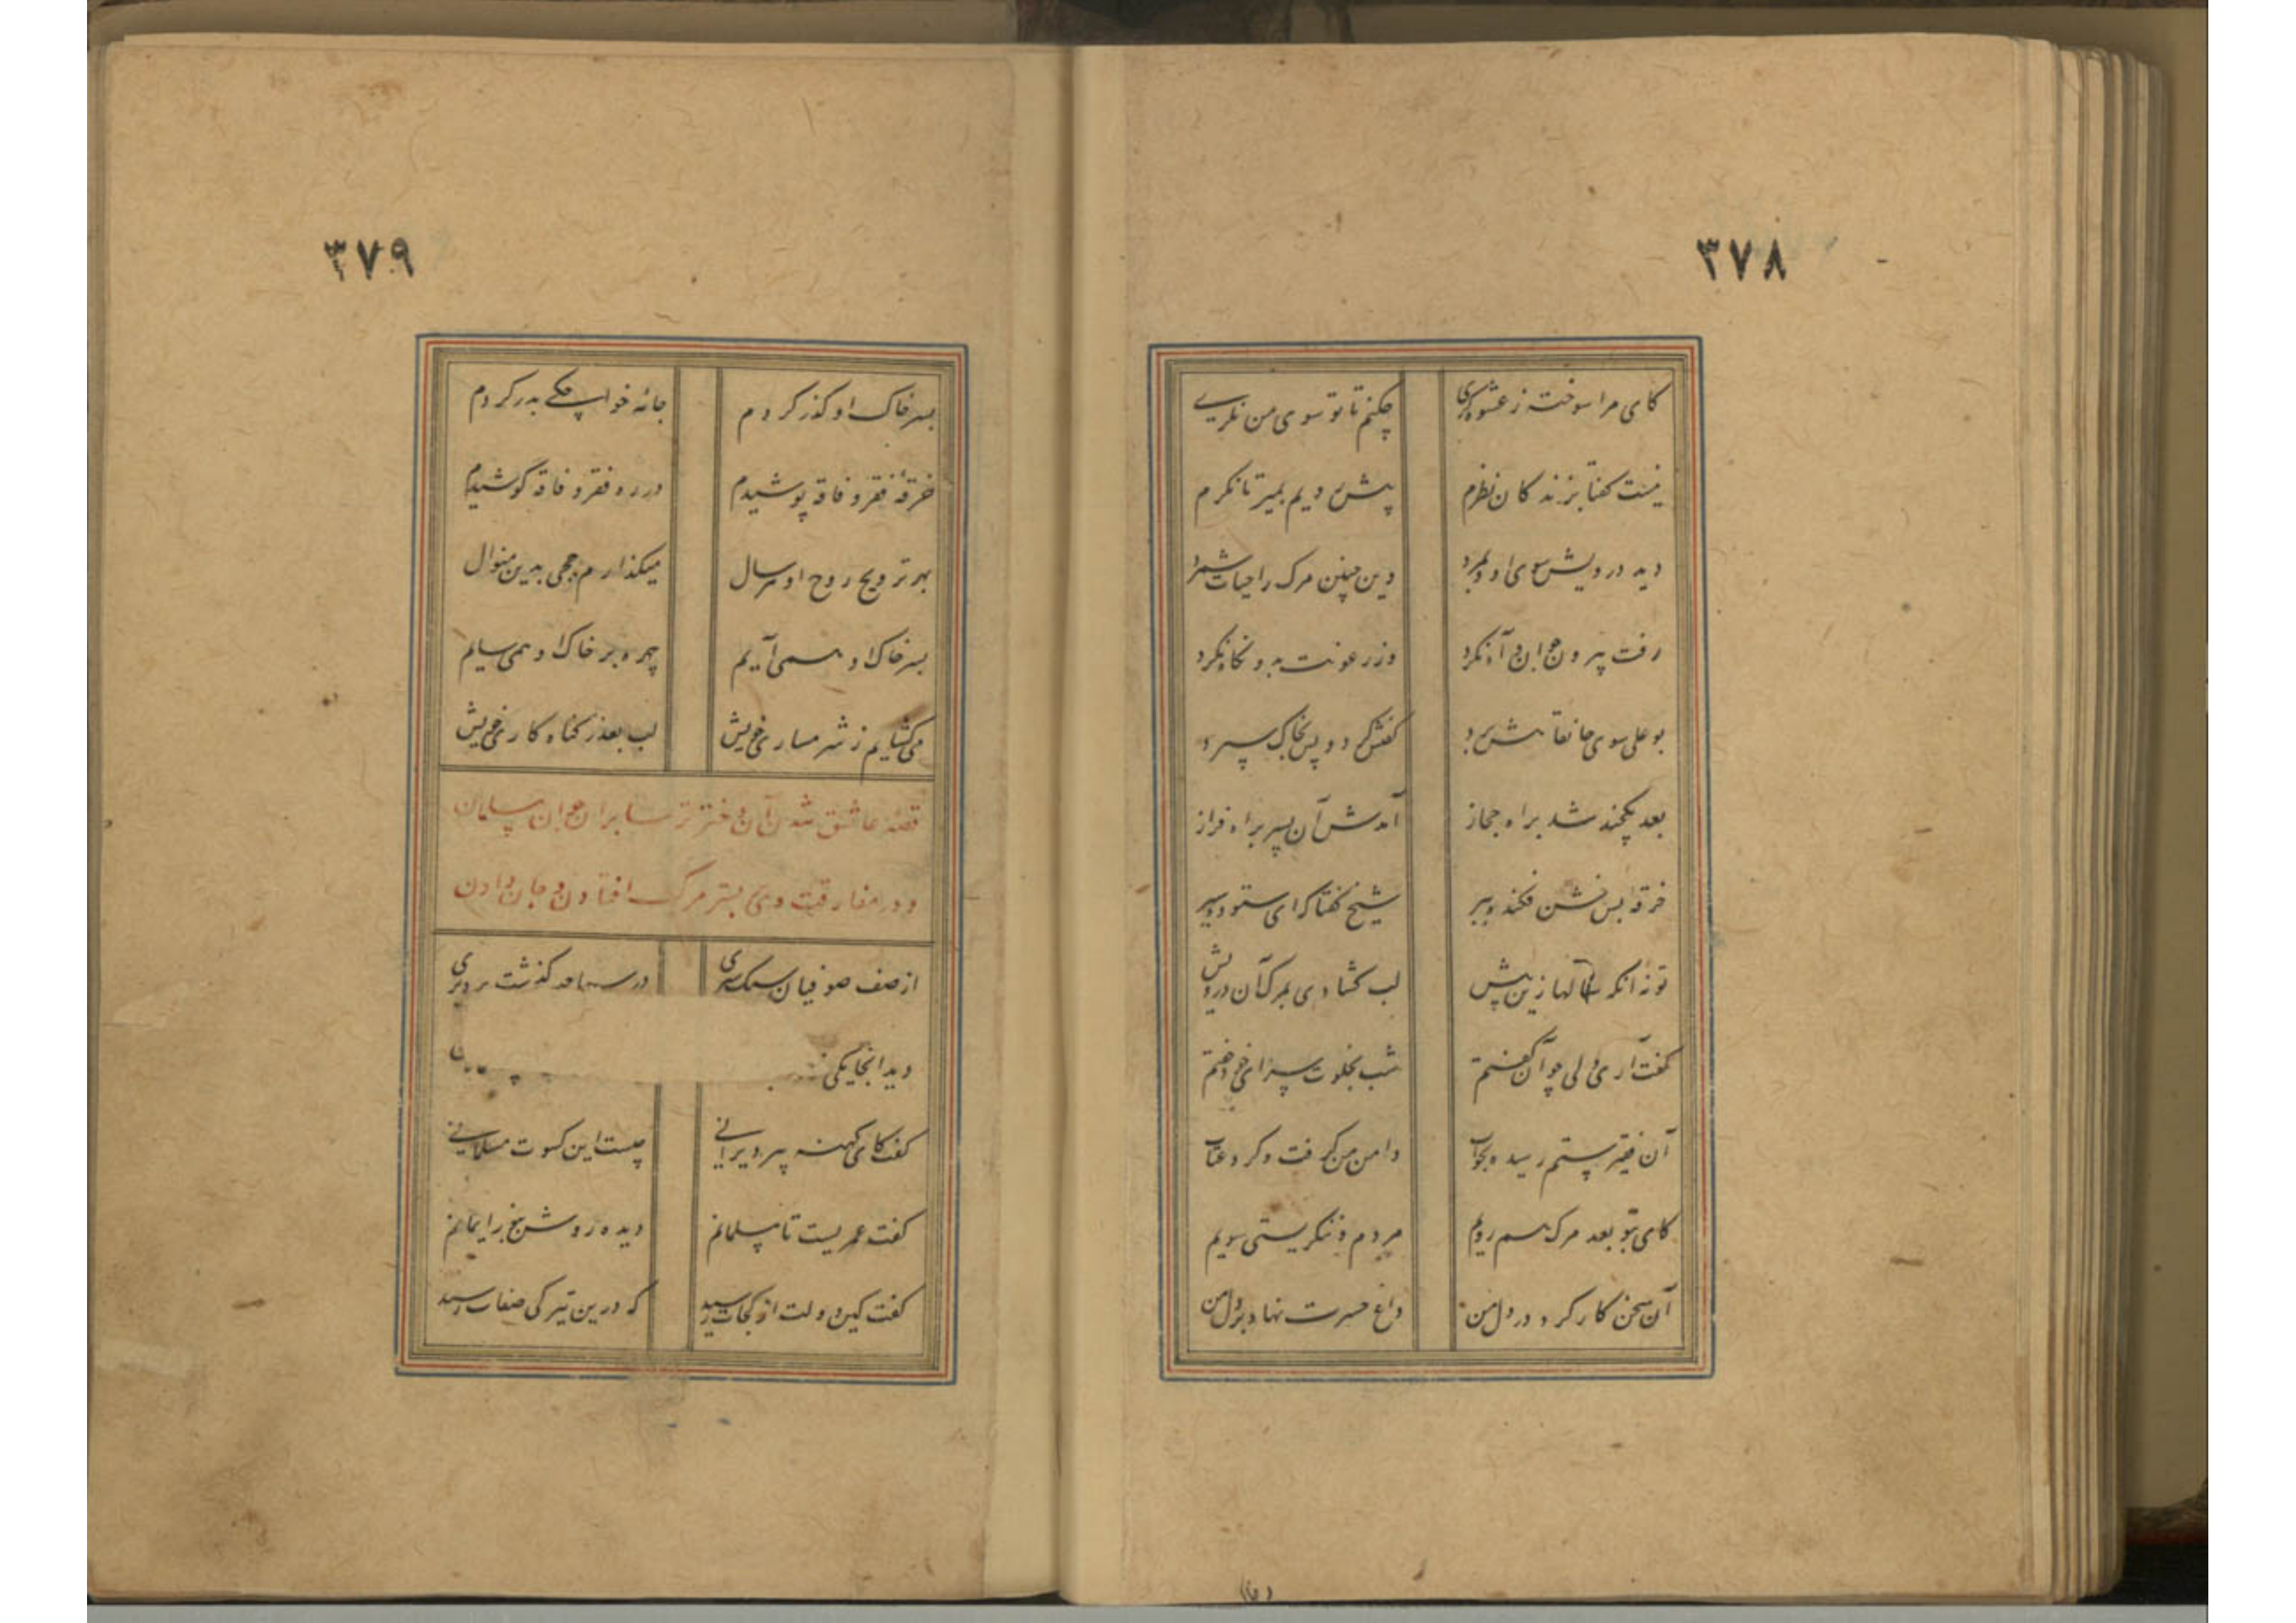 ٣٧٨
کای مرا سوخته ز عشوه‌گری چکنم تا تو سوی من نگری
نیست گفتا بزندگان نظرم پیش رویم بمیر تا نگرم
دید درویش سوی او و بمرد وین چنین مرگ را حیات شمرد
رفت بیرون جوان و آه نکرد وز رعونت بدو نگاه نکرد
بو علی سوی خانقاهش برد کفنش کرد و پس بخاک سپرد
بعد یکچند شد براه حجاز آمدش آن پسر براه فراز
خرقه پس خشن فکنده ببر شیخ گفتا که ای ستوده سیر
تو نه آنکه سالها زین پیش لب گشادی بمرگ آن درویش
گفت آری ولی چو آن گفتم شب بخلوت سرای خود خفتم
آن فقیر ستم رسیده بخواب دامن من گرفت و کرد عتاب
کای بتو بعد مرگ هم رویم مردم و ننگریستی سویم
آن سخن کار کرد در دل من داغ حسرت نهاد بر دل من
٣٧٩
بسر خاک او گذر کردم جامهٔ خواجگی بدر کردم
خرقهٔ فقر و فاقه پوشیدم در ره فقر و فاقه کوشیدم
بهر ترویح روح او هر سال میگذارم حجی بدین منوال
بسر خاک او همی آیم چهره بر خاک او همی سایم
میگشایم ز شرمساری خویش لب بعذر گناه کاری خویش
قصهٔ عاشق شدن آن دختر ترسا بر آن جوان مسلمان
و در مفارقت وی بر بستر مرگ افتادن و جان دادن
از صف صوفیان سبک سیری در سیاحت گذشت بر دیری
دید آنجا یکی
گفت کای کهنه پیر دیرانی چیست این کسوت مسلمانی
گفت عمریست تا مسلمانم دیده روشن بنور ایمانم
گفت کین دولت از کجات رسید که درین تیرگی صفات رسید